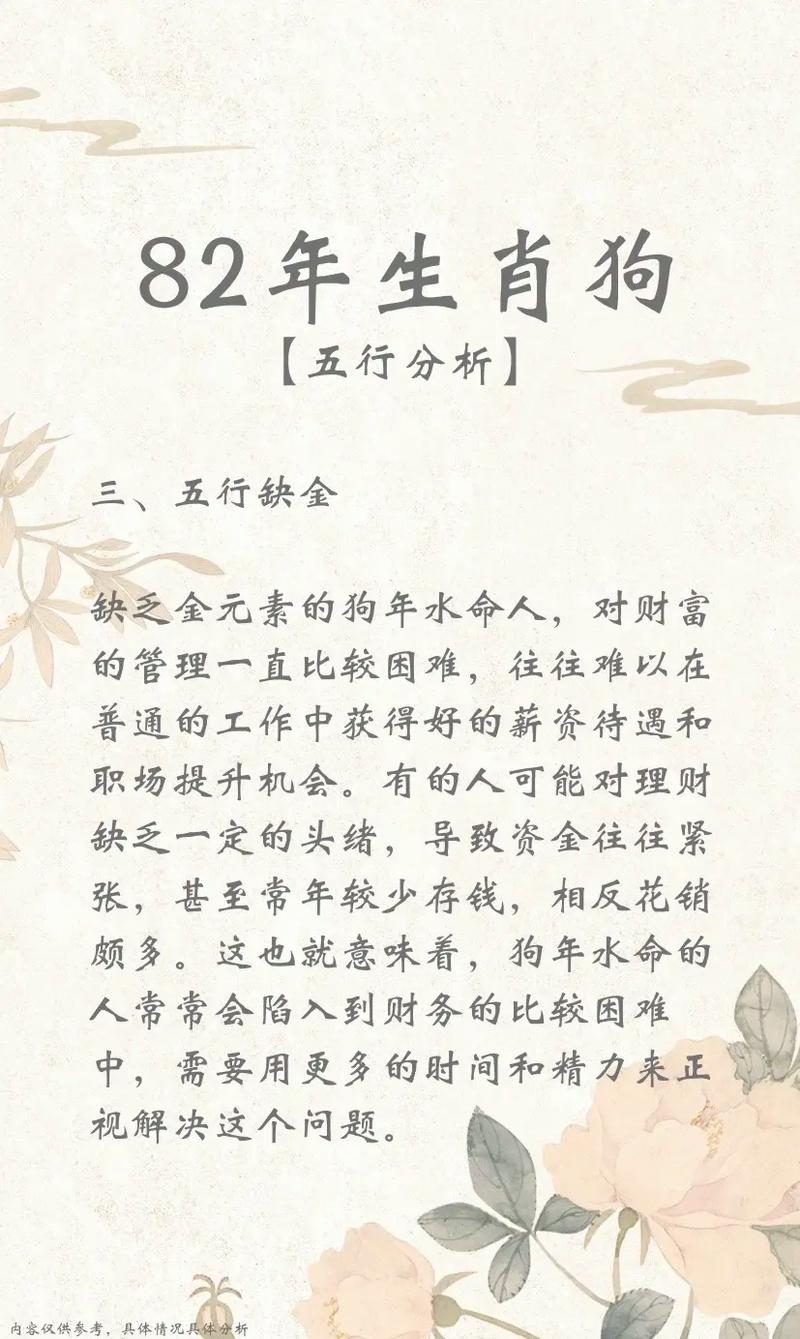 82年生肖狗
【五行分析】
三、五行缺金
缺乏金元素的狗年水命人，对财富
的管理一直比较困难，往往难以在
普通的工作中获得好的薪资待遇和
职场提升机会。有的人可能对理财
缺乏一定的头绪，导致资金往往紧
张，甚至常年较少存钱，相反花销
颇多。这也就意味着，狗年水命的
人常常会陷入到财务的比较困难
中，需要用更多的时间和精力来正
视解决这个问题。
内容仅供参考，具体情况具体分析